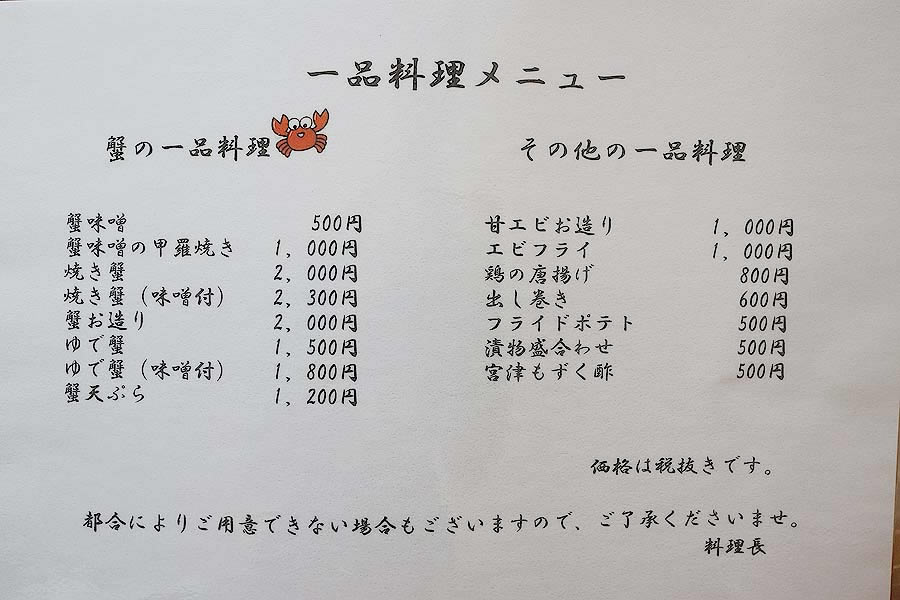 一品料理メニュー
蟹の一品料理
蟹味噌 500円
蟹味噌の甲羅焼き 1,000円
焼き蟹 2,000円
焼き蟹（味噌付） 2,300円
蟹お造り 2,000円
ゆで蟹 1,500円
ゆで蟹（味噌付） 1,800円
蟹天ぷら 1,200円
その他の一品料理
甘エビお造り 1,000円
エビフライ 1,000円
鶏の唐揚げ 800円
出し巻き 600円
フライドポテト 500円
漬物盛合わせ 500円
宮津もずく酢 500円
価格は税抜きです。
都合によりご用意できない場合もございますので、ご了承くださいませ。
料理長